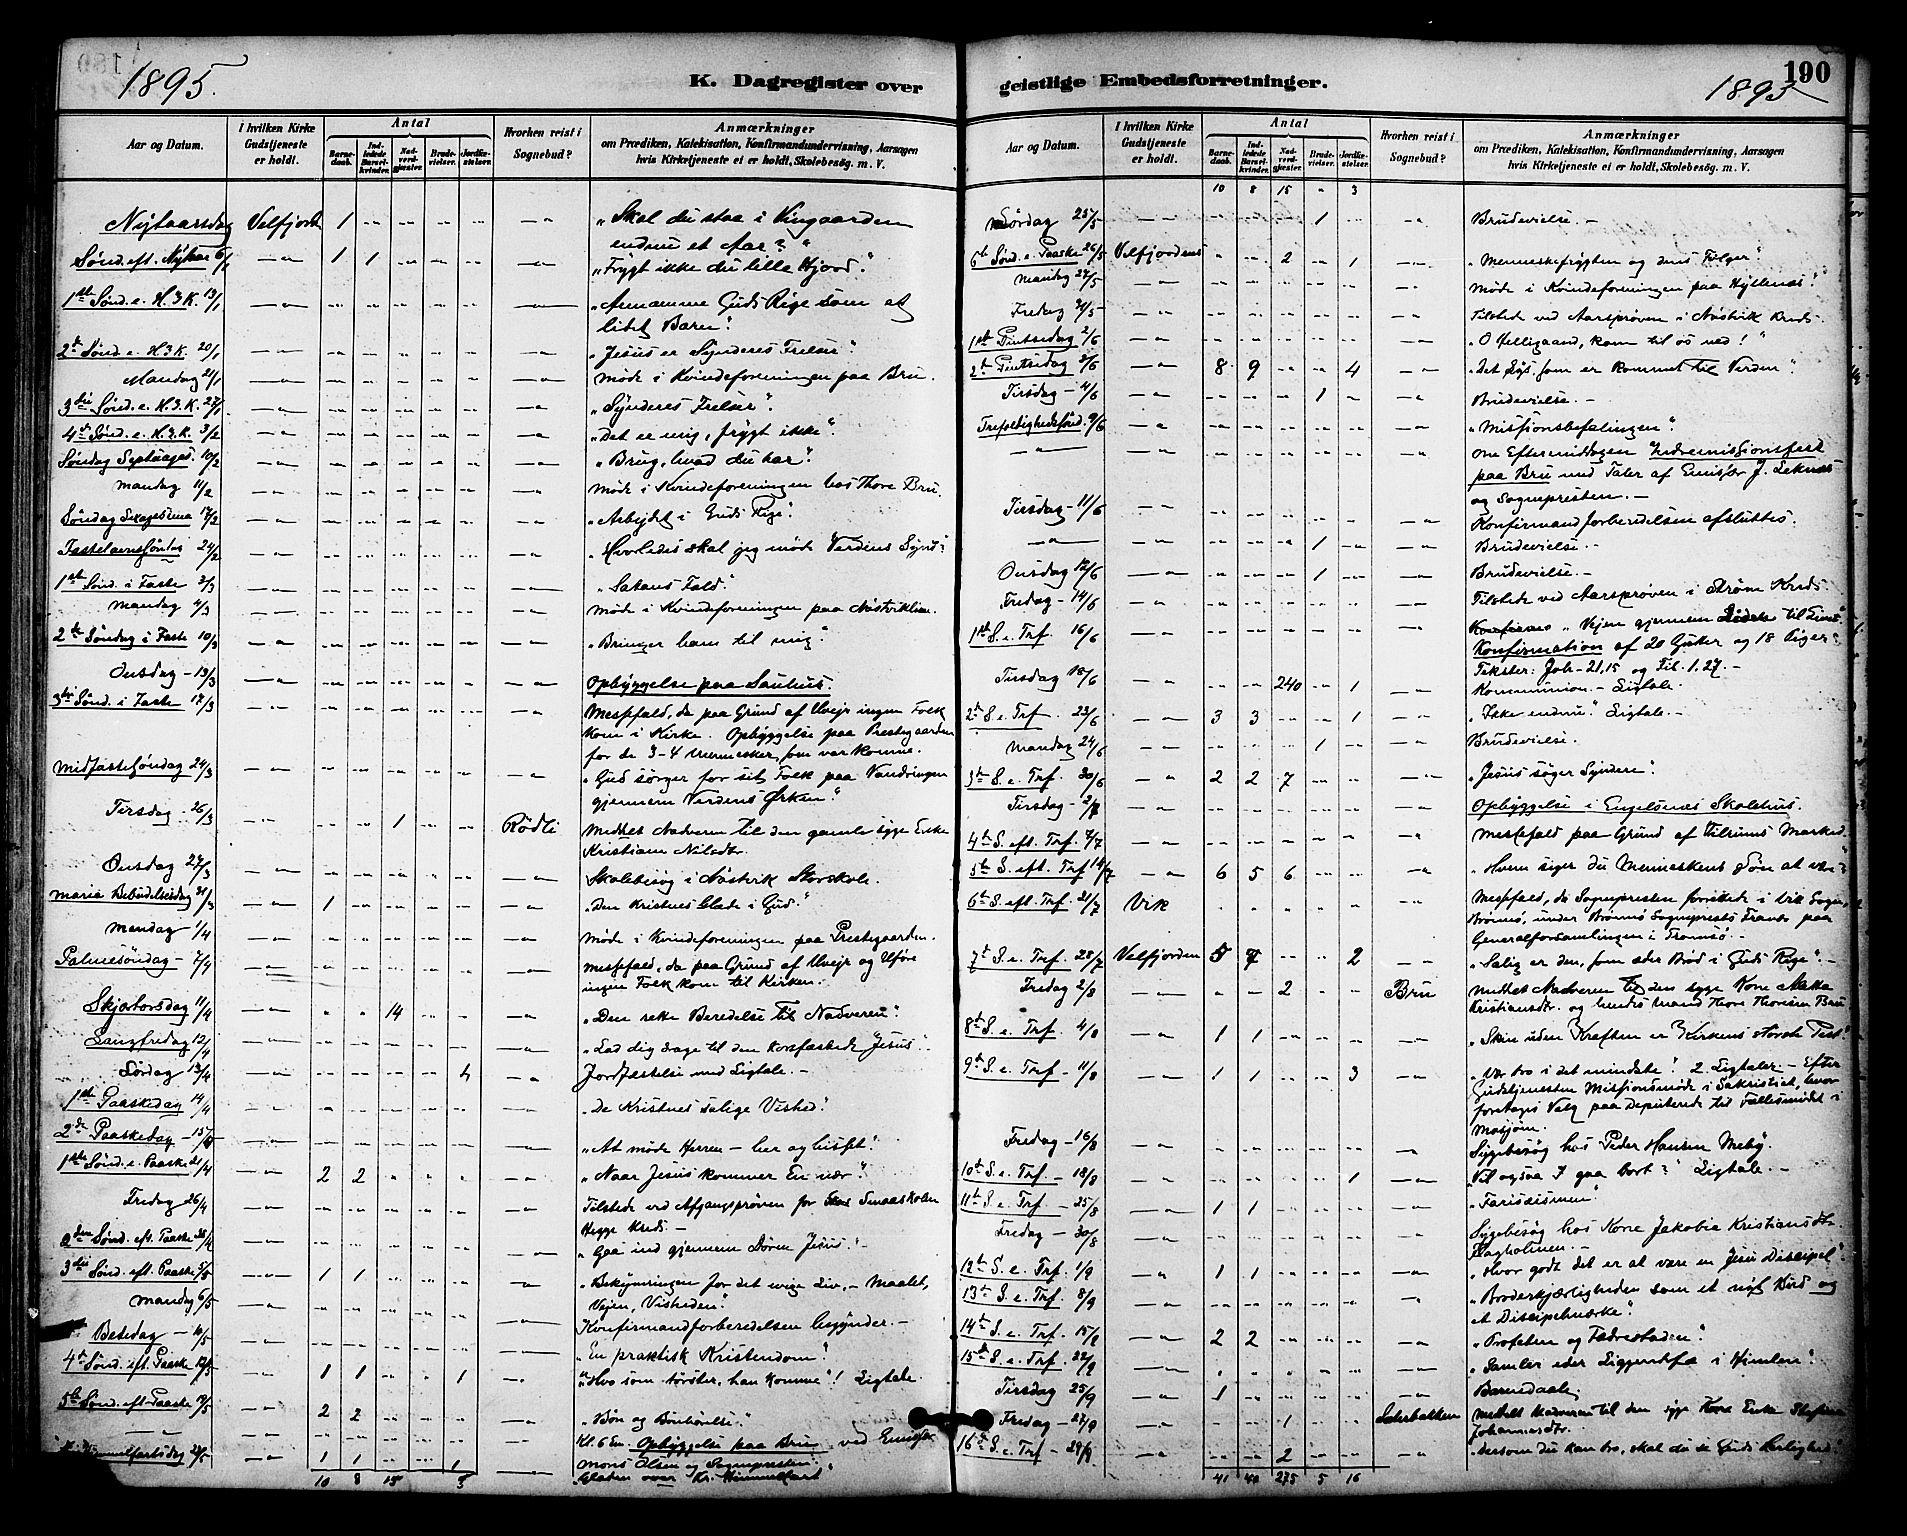 1895.
K. Dagregister over
Aar og Datum.
I hvilken Kirke Gudstjeneste er holdt.
Antal
Barnedaab.
Indledede Barselkvinder.
Nadverdgjester.
Brudevielser.
Jordfæstelser.
Hvorhen reist i Sognebud?
Anmærkninger
om Prædiken, Katekisation, Konfirmandundervisning, Aarsagen
hvis Kirketjeneste ei er holdt, Skolebesøg. m. V.
Nytaarsdag Velfjord 1 „Skal du staa i Vingaarden
endnu et Aar?"
Sønd. eft. Nytaar 6/1 1 1 „Frygt ikke du lille Hjord."
1ste Sønd. e. H.3.K. 13/1 „Annamme Guds Rige som et
lidet Barn".
2den Sønd. e. H.3.K. 20/1 „Jesus er Synderes Frelser".
Mandag 21/1 Møde i Kvindeforeningen paa Bru.
3die Sønd. e. H.3.K. 27/1 „Synderes Frelser".
4de Sønd. e. H.3.K. 3/2 „Det er mig, frygt ikke".
Søndag Septuages. 10/2 „Brug, hvad du har".
Mandag 11/2 Møde i Kvindeforeningen hos Thore Bru.
Søndag Sexagesima 17/2 „Arbejdet i Guds Rige".
Fastelavnssøndag 24/2 „Hvorledes skal jeg møde Verdens Synd"?
1ste Sønd. i Faste 3/3 „Satans Fald".
Mandag 4/3 Møde i Kvindeforeningen paa Nøstviklien.
2den Søndag i Faste 10/3 „Bringer ham til mig".
Onsdag 13/3 Opbyggelse paa Sauhus.
3die Sønd. i Faste 17/3 Messefald, da paa Grund af Uvejr ingen Folk
kom i Kirke. Opbyggelse paa Prestegaarden
for de 3-4 Mennesker, som var komne.
Midfastesøndag 24/3 „Gud sørger for sit Folk paa Vandringen
gjennem Verdens Ørken".
Tirsdag 26/3 1 Rødli Meddelt Nadveren til den gamle syge Enke
Kristiane Nilsdtr.
Onsdag 27/3 Skolebesøg i Nøstvik Storskole.
Maria Bebudelsesdag 31/3 1 „Den Kristnes Glæde i Gud."
Mandag 1/4 Møde i Kvindeforeningen paa Prestegaarden.
Palmesøndag 7/4 Messefald, da paa Grund af Uvejr og Uføre
ingen Folk kom til Kirken.
Skjærtorsdag 11/4 14 „Den rette Beredelse til Nadveren".
Langfredag 12/4 „Lad dig drage til den korsfæstede Jesus".
Lørdag 13/4 4 Jordfæstelse med Ligtale.
1ste Paaskedag 14/4 „De Kristnes salige Vished".
2den Paaskedag 15/4 „At møde Herren – her og hisset".
1ste Sønd. e. Paaske 21/4 2 2 „Naar Jesus kommer En nær".
Fredag 26/4 Tilstede ved Afgangsprøven for Smaaskolen
Hegge Kreds.
2den Sønd. eft. Paaske 28/4 „Gaa ind gjennem Døren Jesus".
3die Sønd. eft. Paaske 5/5 1 1 „Bekymringen for det evige Liv, – Maalet,
Vejen, Visheden".
Mandag 6/5 Konfirmandforberedelsen begynder.
Bededag 10/5 „En praktisk Kristendom".
4de Sønd. eft. Paaske 12/5 1 1 1 „Hvo som tørster, han komme"! Ligtale
5te Sønd. eft. Paaske 19/5 2 2 „Bøn og Bønhørelse".
Kl. 6 Em. Opbyggelse paa Bru ved Emissær
Mons Olsen og Sognepresten.
Himmelfartsdag 1 1 1 Glæden over Kr. Himmelfart
10 8 15

geistlige Embedsforretninger.
1895
190
Aar og Datum.
I hvilken Kirke Gudstjeneste er holdt.
Antal
Barnedaab.
Indledede Barselkvinder.
Nadverdgjester.
Brudevielser.
Jordfæstelser.
Hvorhen reist i Sognebud?
Anmærkninger
om Prædiken, Katekisation, Konfirmandundervisning, Aarsagen
hvis Kirketjeneste ei er holdt, Skolebesøg. m. V.
10 8 15 „ 3
Lørdag 25/5 1 Brudevielse.
6te Sønd. e. Paaske 26/5 Velfjorden 2 1 „Menneskefrygten og dens Følger".
Mandag 27/5 Møde i Kvindeforeningen paa Hyllenæs.
Fredag 31/5 Tilstede ved Aarsprøven i Nøstvik Kreds.
1ste Pintsedag 2/6 „O Helligaand, kom til os ned!"
2den Pintsedag 3/6 8 9 4 „Det Lys som er kommet til Verden".
Tirsdag 4/6 1 Brudevielse.
Trefoldighedssønd. 9/6 „Missionsbefalingen".
Om Eftermiddagen Indremissionsfest
paa Bru med Taler af Emissær J. Leknes
og Sognepresten.
Tirsdag 11/6 Konfirmandforberedelsen afsluttes.
1 Brudevielse.
Onsdag 12/6 1 Brudevielse.
Fredag 14/6 Tilstede ved Aarsprøven i Strøm Kreds.
1ste S. e. Trf. 16/6 „Vejen gjennem Lidelse til Livet".
Konfirmation af 20 Gutter og 18 Piger.
Tekster: Joh. 21,15 og Fil. 1,27.
Tirsdag 18/6 240 1 Kommunion. Ligtale.
2den S. e. Trf. 23/6 3 3 1 „Ikke endnu". Ligtale.
Mandag 24/6 1 Brudevielse.
3die S. e. Trf. 30/6 2 2 7 „Jesus søger Syndere".
Tirsdag 2/7 Opbyggelse i Engelsnæs Skolehus.
4de S. eft. Trf. 7/7 Messefald paa Grund af Tilrums Marked.
5te S. eft. Trf. 14/7 6 5 6 „Hvem siger du Menneskens Søn at være"?
6te S. eft. Trf. 21/7 Vik Messefald, da Sognepresten forrettede i Vik Sogn,
Brønnø, under Brønnø Sogneprests Fravær paa
Generalforsamlingen i Tromsø.
7de S. e. Trf. 28/7 Velfjorden 5 4 2 „Salig er den, som æder Brød i Guds Rige".
Fredag 2/8 2 Bru Meddelt Nadveren til den syge Kone Marta
Kristiansdtr. og hendes Mand Thore Thoresen Bru
8de S. e. Trf. 4/8 1 1 „Skin uden Kraften er Kirkens største Pest".
9de S. e. Trf. 11/8 1 1 3 „Vær tro i det mindste". 2 Ligtaler. – Efter
Gudstjenesten Missionsmøde i Sakristiet, hvor
foretages Valg paa Deputerede til Fællesmødet i
Mosjøen.
Fredag 16/8 Sygebesøg hos Peder Hansen Meby.
10de S. e. Trf. 18/8 1 „Vil ogsaa I gaa bort?" Ligtale.
11te S. e. Trf. 25/8 1 1 „Farisæismen".
Fredag 30/8 Sygebesøg hos Kone Jakobia Kristiansdtr.
Flagholmen.
12te S. e. Trf. 1/9 1 1 „Hvor godt det er at være en Jesu Discipel".
13de S. e. Trf. 8/9 „Broderkjærligheden som et nyt Bud og
et Discipelmærke".
14de S. e. Trf. 15/9 2 2 „Profeten og Fædrestaden".
15de S. e. Trf. 22/9 „Samler eder Liggendefæ i Himlen".
Tirsdag 25/9 1 Barnedaab.
Fredag 27/9 1 Sæterbakken Meddelt Nadveren til den syge Kone Enke
Johannesdtr.
16de S. e. Trf. 29/9 2 „Dersom du kan tro, skal du se Guds Herlighed".
41 40 275 5 16